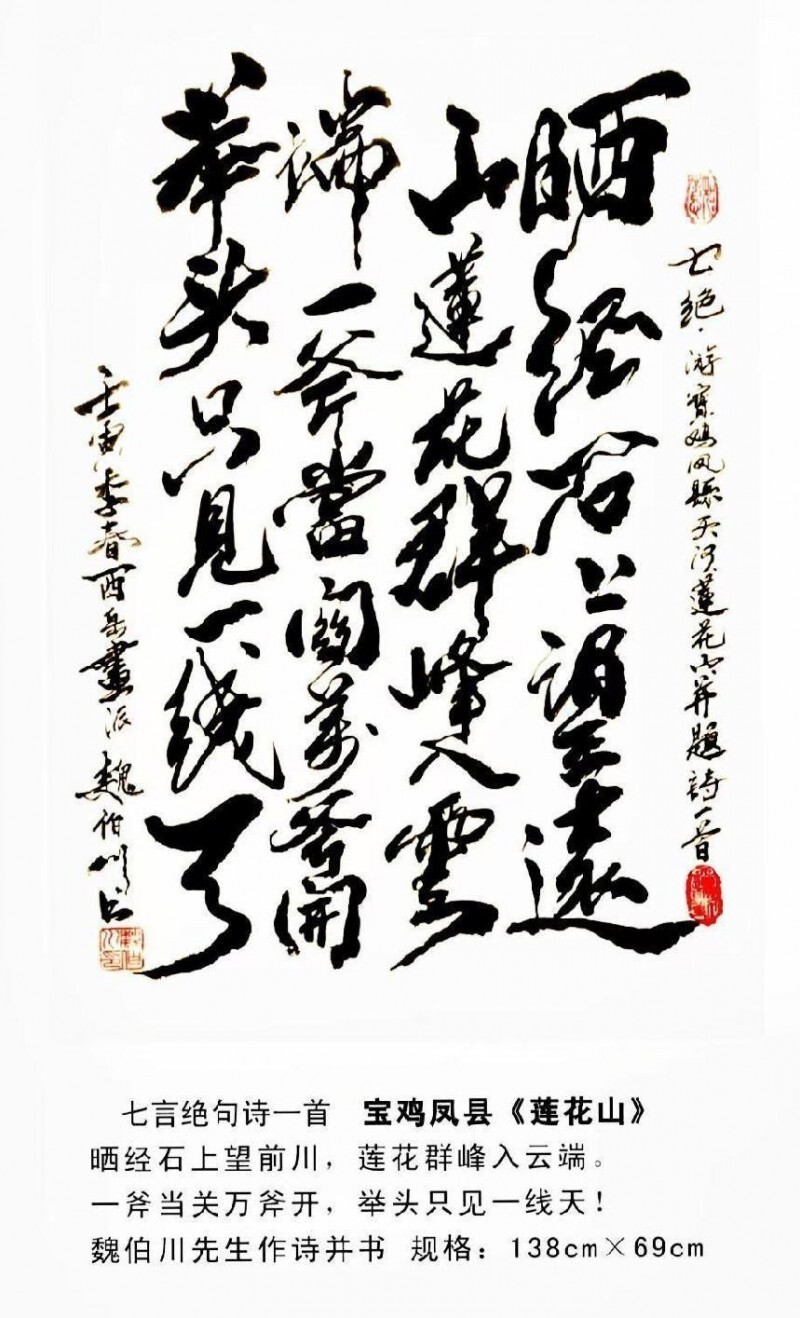 七绝·游寶鸡凤縣天河蓮花山并題詩一首
晒经石上望遠
山蓮花群峰入雲
端一斧當關萬斧開
举头只見一线天
壬寅季春西岳畫派魏伯川书
七言绝句诗一首 宝鸡凤县《莲花山》
晒经石上望前川，莲花群峰入云端。
一斧当关万斧开，举头只见一线天！
魏伯川先生作诗并书 规格：138cm×69cm